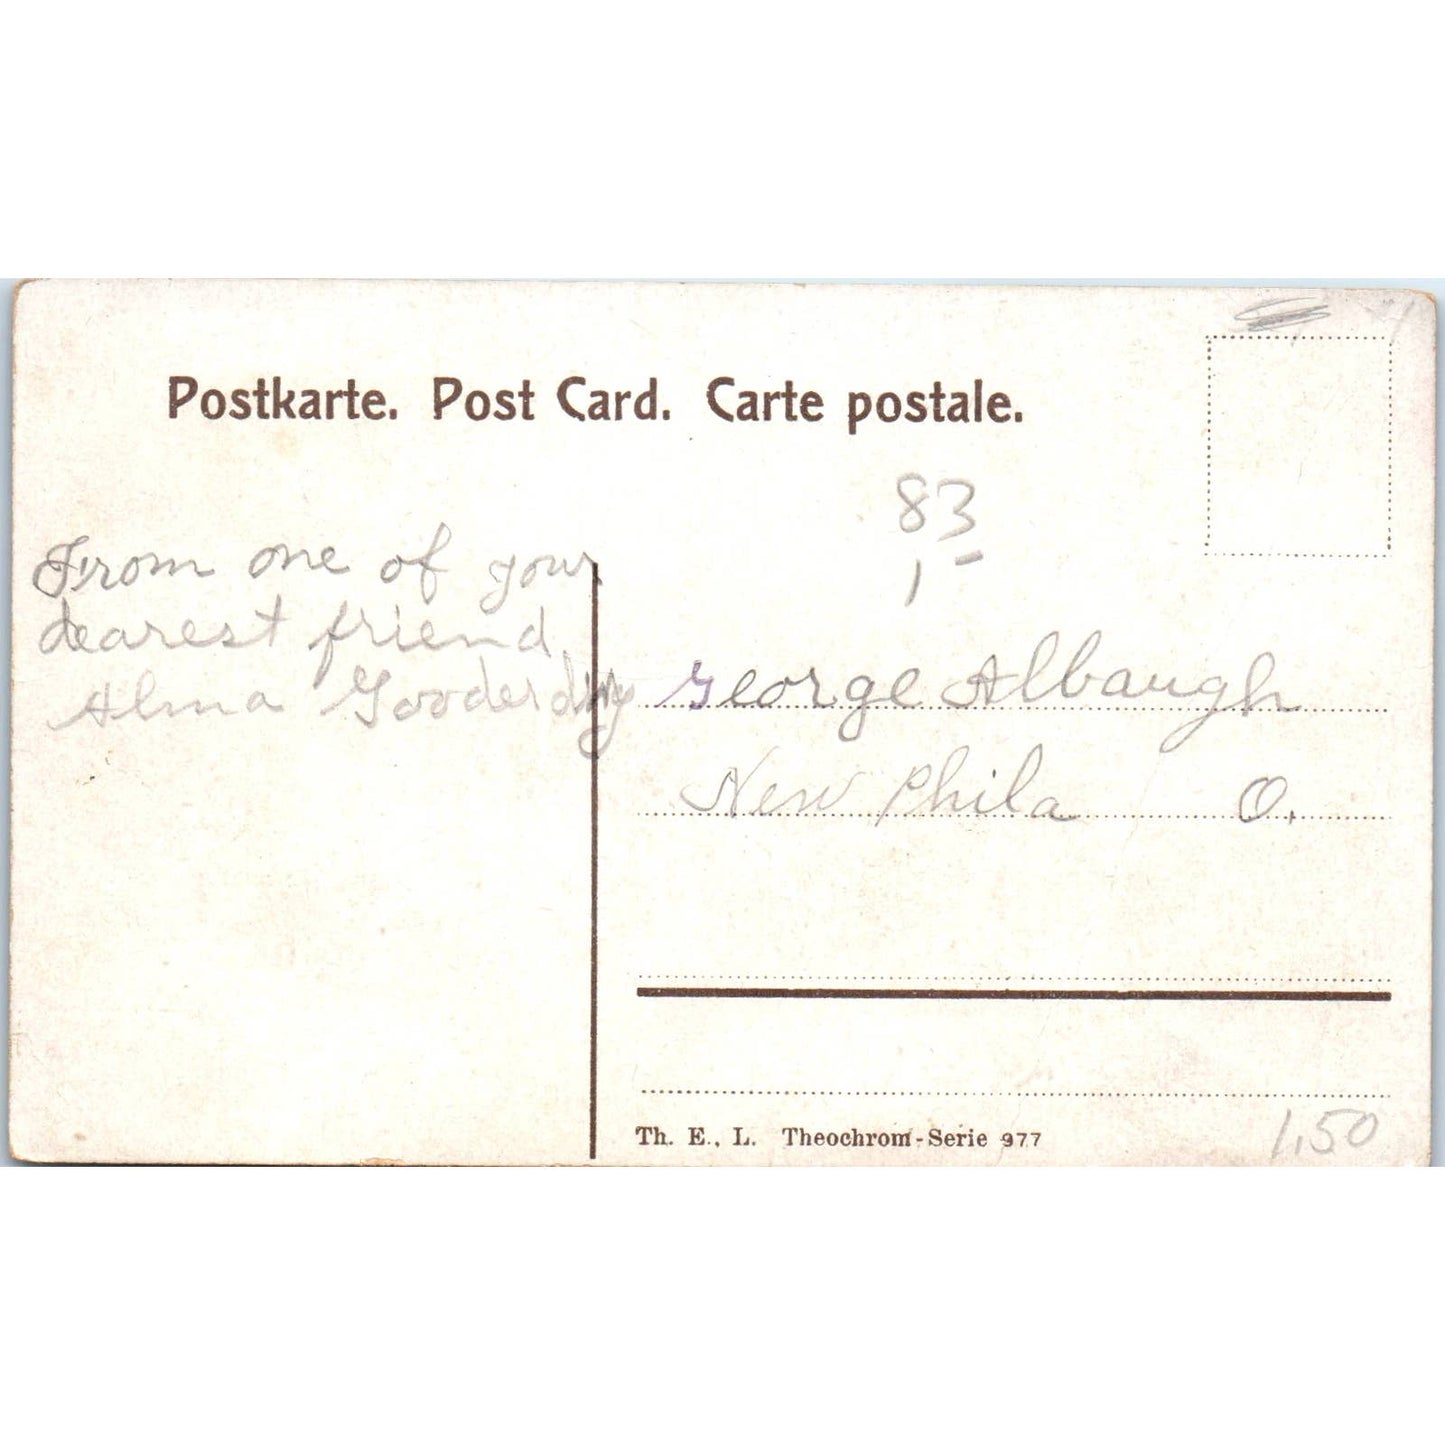 Postkarte. Post Card. Carte postale.
83
1
From one of your
dearest friend,
Alma
George Albaugh
New Phila O.
Th. E., L. Theochrom-Serie 977
1,50